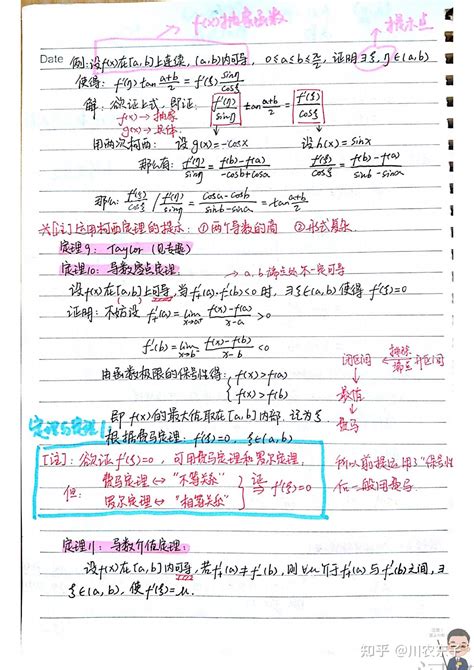 f(x)抽象函数
提示点
Date 例:设f(x)在[a,b]上连续,(a,b)内可导, 0≤a≤b≤π/2, 证明∃ξ,η∈(a,b)
使得: f'(η)tan (a+b)/2 = f'(ξ) sinη/cosξ
解: 欲证上式, 即证: f'(η)/sinη tan (a+b)/2 = f'(ξ)/cosξ
f(x)→抽象
g(x)→具体
用两次柯西: 设g(x)=-cosx 设h(x)=sinx
那么有: f'(η)/sinη = f(b)-f(a)/-cosb+cosa f'(ξ)/cosξ = f(b)-f(a)/sinb-sina
那么: f'(ξ)/cosξ / f'(η)/sinη = cosa-cosb/sinb-sina = tan (a+b)/2
[注] 运用柯西定理的提示: ①两个导数的商 ②形式复杂.
定理9: Taylor (见专题)
定理10: 导数零点定理 → a,b端点处不一定可导
设f(x)在[a,b]上可导,当f'₊(a)·f'₋(b)<0时,∃ξ∈(a,b)使得 f'(ξ)=0
证明: 不妨设 f'₊(a)=lim x→a⁺ f(x)-f(a)/x-a >0
f'₋(b)=lim x→b⁻ f(x)-f(b)/x-b <0
闭区间 ← 排除端点 开区间
由函数极限的保号性得: { f(x)>f(a)
f(x)>f(b)
最值
费马
即 f(x)的最大值取在[a,b]内部. 设为ξ
定理与定理
根据费马定理: f'(ξ)=0, ξ∈(a,b)
[注]: 欲证f'(ξ)=0, 可用费马定理和罗尔定理,
但: 费马定理 ↔ "不等关系"
罗尔定理 ↔ "相等关系" } 证 ⇒ f'(ξ)=0
所以前提运用了"保号性"
后一般用费马
定理11: 导数介值定理:
设f(x)在[a,b]内可导, 若f'₊(a)≠f'₋(b), 则∀μ介于f'₊(a)与f'₋(b)之间, ∃
ξ∈(a,b), 使f'(ξ)=μ.
知乎